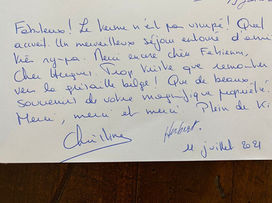 Fabuleux! Le terme n'est pas usurpé! Quel
accueil. Un merveilleux séjour entouré d'amis
très sympa. Merci encore chère Fabienne,
Cher Hugues. Trop triste que remonter
vers la grisaille belge! Que de beaux
souvenirs de votre magnifique propriété.
Merci, merci et merci. Plein de
Christine
Hubert.
juillet 2021